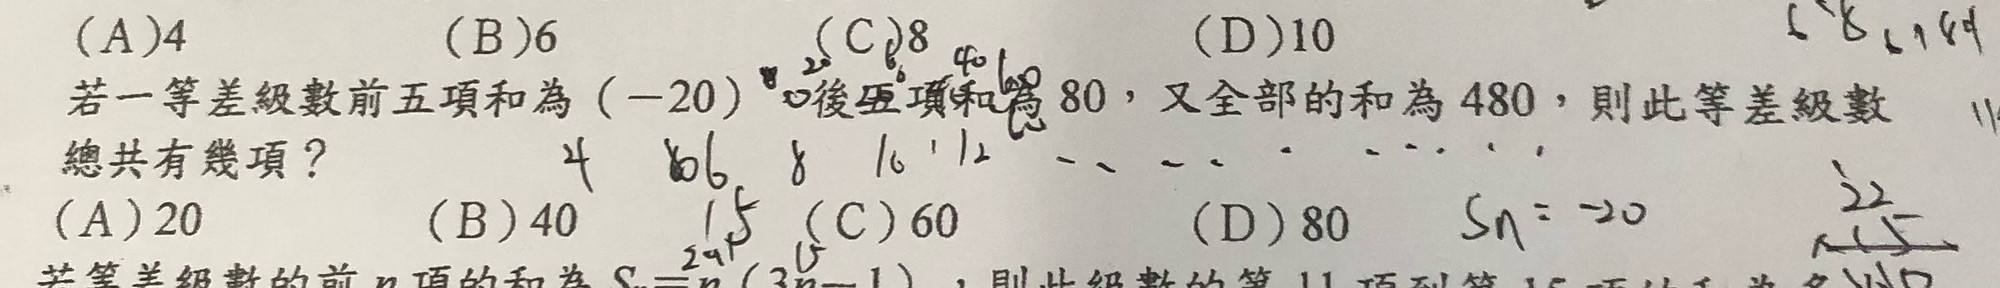 (A)4 (B)6 (C)8 (D)10
若一等差級數前五項和為(－20) 後五項和為 80，又全部的和為 480，則此等差級數
總共有幾項？ 4 6 8 10 12
(A)20 (B)40 15 (C)60 (D)80 Sn = -20 22
若等差級數的前 n 項的和為 (3n－1)，則此級數的第 11 項到第 15 項